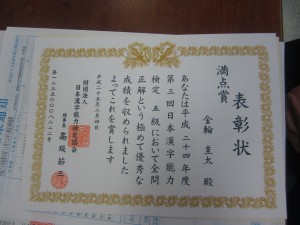 表彰状
満点賞
金輪 圭太 殿
あなたは平成二十四年度
第三回日本漢字能力
検定 五級において全問
正解という極めて優秀な
成績を収められました
よってこれを賞します
平成二十五年三月四日
財団法人
日本漢字能力検定協会
理事長 高坂 節三